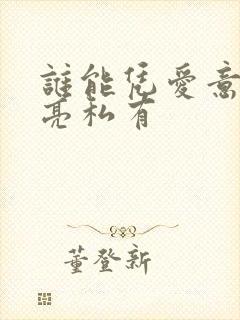 誰能凭愛意
亮私有
董登新